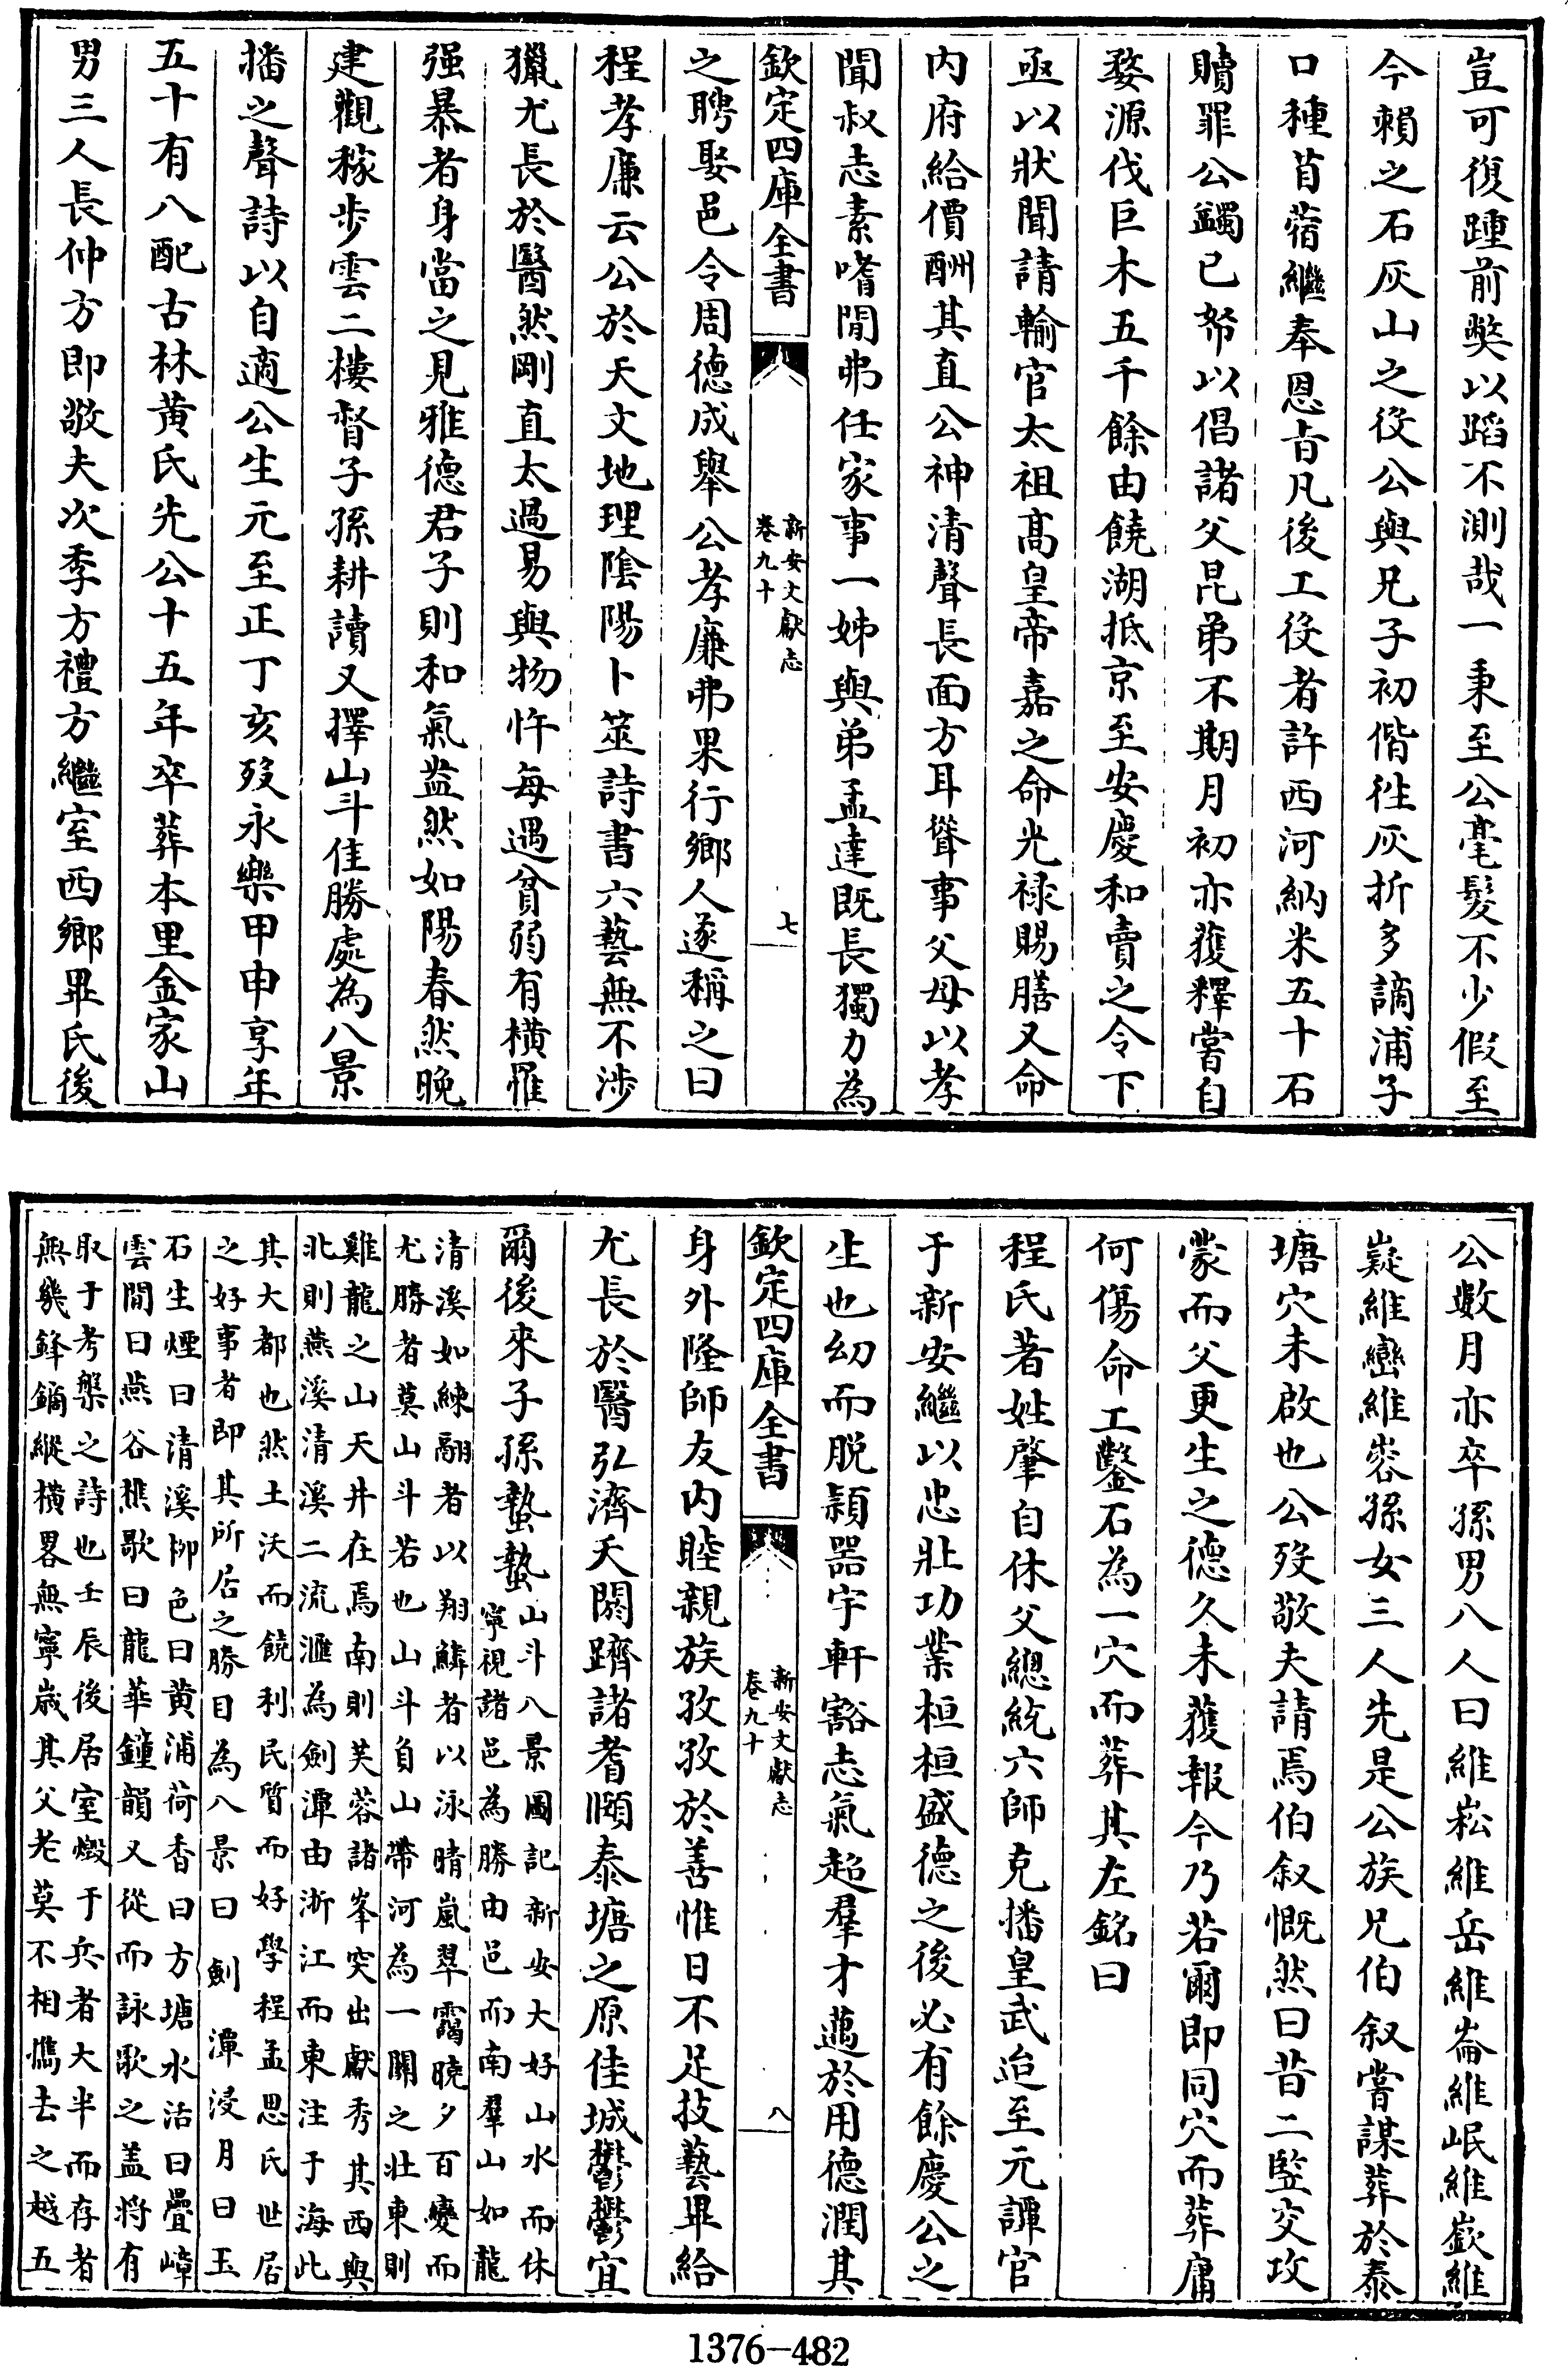 豈可復踵前弊以蹈不測哉一秉至公毫髮不少假至
今賴之石灰山之役公與兄子初偕徃灰折多謫浦子
口種苜蓿繼奉恩旨凡後工役者許西河納米五十石
贖罪公蠲已帑以倡諸父昆弟不期月初亦獲釋嘗自
婺源伐巨木五千餘由饒湖抵京至安慶和賣之令下
亟以狀聞請輸官太祖髙皇帝嘉之命光禄賜膳又命
内府給價酬其直公神清聲長面方耳聳事父母以孝
聞叔志素嗜閒弗任家事一姊與弟孟達既長獨力為
欽定四庫全書
新安文獻志
卷九十
七
之聘娶邑令周德成舉公孝廉弗果行鄉人遂稱之曰
程孝廉云公於天文地理隂陽卜筮詩書六藝無不涉
獵尤長於醫然剛直太過易與物忤每遇貧弱有横罹
强暴者身當之見雅德君子則和氣盎然如陽春然晚
建觀稼步雲二樓督子孫耕讀又擇山斗佳勝處為八景
播之聲詩以自適公生元至正丁亥殁永樂甲申享年
五十有八配古林黄氏先公十五年卒葬本里金家山
男三人長仲方即敬夫次季方禮方繼室西鄉畢氏後
公數月亦卒孫男八人曰維崧維岳維崙維岷維嶽維
嶷維巒維峇孫女三人先是公族兄伯叙嘗謀葬於泰
塘穴未啟也公殁敬夫請焉伯叙慨然曰昔二竪交攻
蒙而父更生之德久未獲報今乃若爾即同穴而葬庸
何傷命工鑿石為一穴而葬其左銘曰
程氏著姓肇自休父總統六師克播皇武迨至元譚官
于新安繼以忠壯功業桓桓盛德之後必有餘慶公之
生也幼而脱頴噐宇軒豁志氣超羣才邁於用德潤其
欽定四庫全書
新安文獻志
卷九十
八
身外隆師友内睦親族孜孜於善惟日不足技藝畢給
尤長於醫弘濟夭閼躋諸耆頤泰塘之原佳城鬱鬱宜
爾後來子孫蟄蟄
山斗八景圖記新安大好山水而休
寧視諸邑為勝由邑而南羣山如龍
清溪如練翮者以翔鱗者以泳晴嵐翠靄曉夕百變而
尤勝者莫山斗若也山斗負山帶河為一關之壯東則
雞龍之山天井在焉南則芙蓉諸峯突出獻秀其西與
北則燕溪清溪二流滙為劍潭由浙江而東注于海此
其大都也然土沃而饒利民質而好學程孟思氏世居
之好事者即其所居之勝目為八景曰劍潭浸月曰玉
石生煙曰清溪栁色曰黄浦荷香曰方塘水活曰疊嶂
雲閒曰燕谷樵歌曰龍華鐘韻又從而詠歌之盖將有
取于考槃之詩也壬辰後居室燬于兵者大半而存者
無幾鋒鏑縱横畧無寧歳其父老莫不相㩦去之越五
1376-482